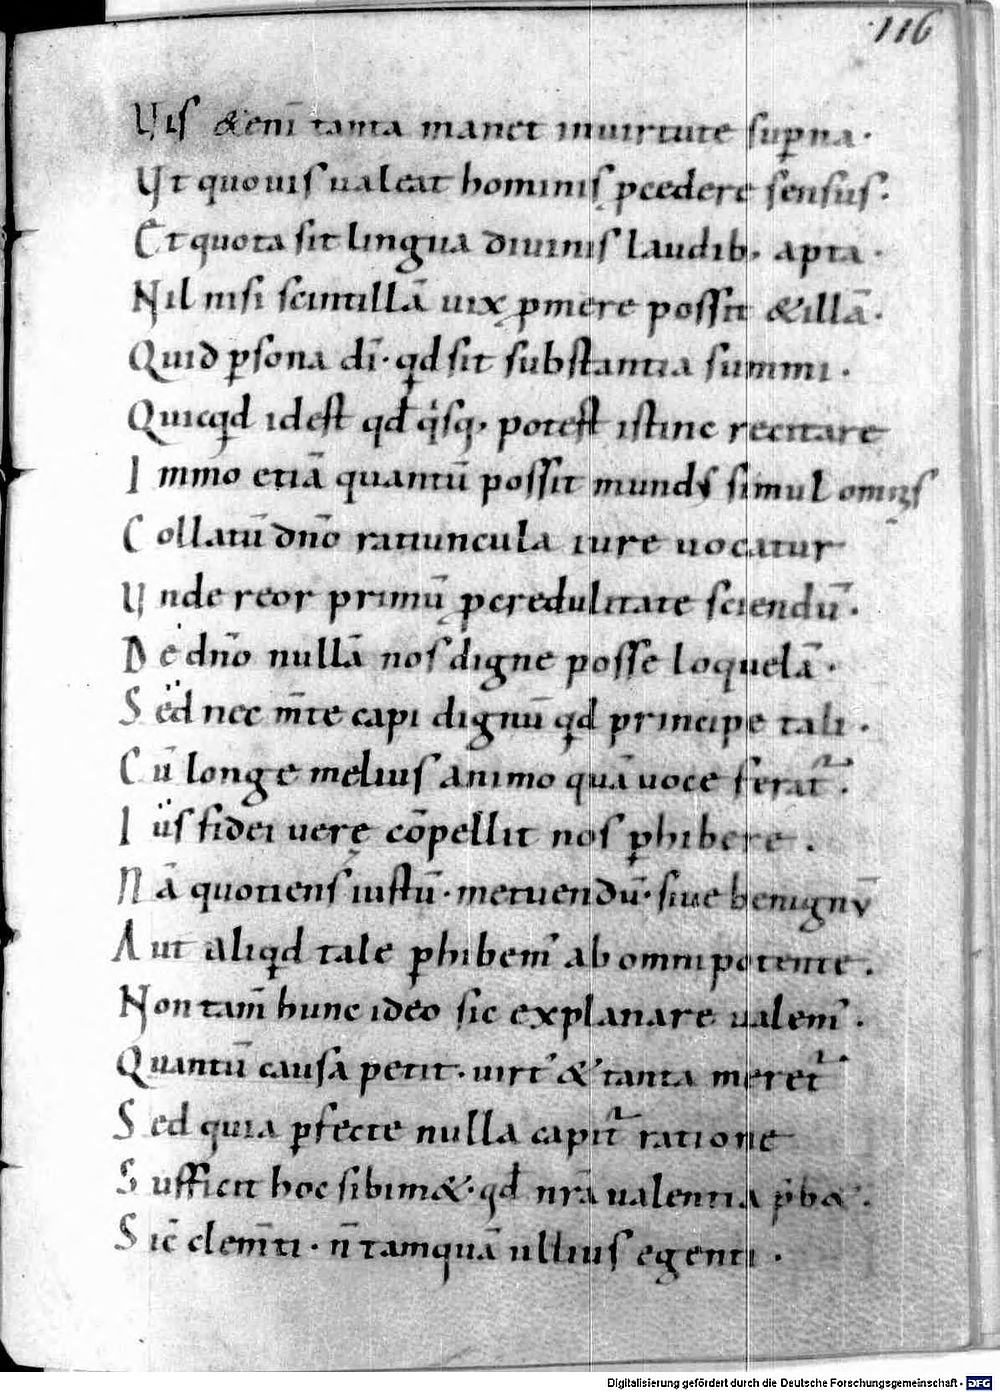 116
Vis &enī tanta manet inuirtute suꝑna·
Vt quouis ualeat hominis ꝓcedere sensus·
Et quota sit lingua diuinis laudib; apta·
Nil nisi scintillā uix ꝓmere possit &illā·
Quid ꝑsona dī· qd sit substantia summi·
Quicqd idest qd qisq; potest istinc recitare
Immo etiā quantū possit mundus simul omnis
Collatū dn̄o ratiuncula iure uocatur
Vnde reor primū ꝓcredulitate sciendū·
De dn̄o nullā nos digne posse loquelā·
Sed nec m̄te capi dignū qd principe tali·
Cū longe melius animo quā uoce ferat᷑·
Ius fidei uerę cōpellit nos ꝑhibere·
Nā quotiens iustū· metuendū· siue benignū
Aut aliqd tale ꝑhibem᾽ ab omnipotente·
Non tam̄ hunc ideo sic explanare ualem᾽·
Quantū causa petit· uirt᾽ & tanta meret᷑
Sed quia ꝑfecte nulla capit᷑ ratione
Sufficit hoc sibim&· qd nr̄a ualentia p̄b&·
Sic̄ clem̄ti· n̄ tamquā ullius egenti·
Digitalisierung gefördert durch die Deutsche Forschungsgemeinschaft - DFG